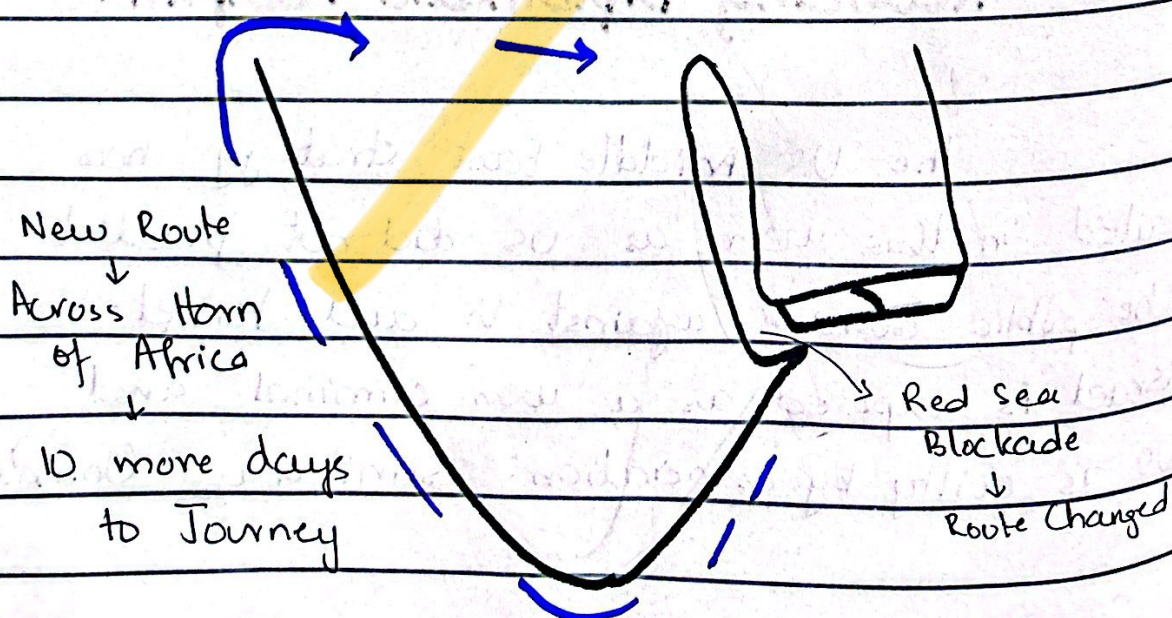 New Route
↓
Across Horn
of Africa
↓
10 more days
to Journey
Red Sea
Blockade
↓
Route Changed